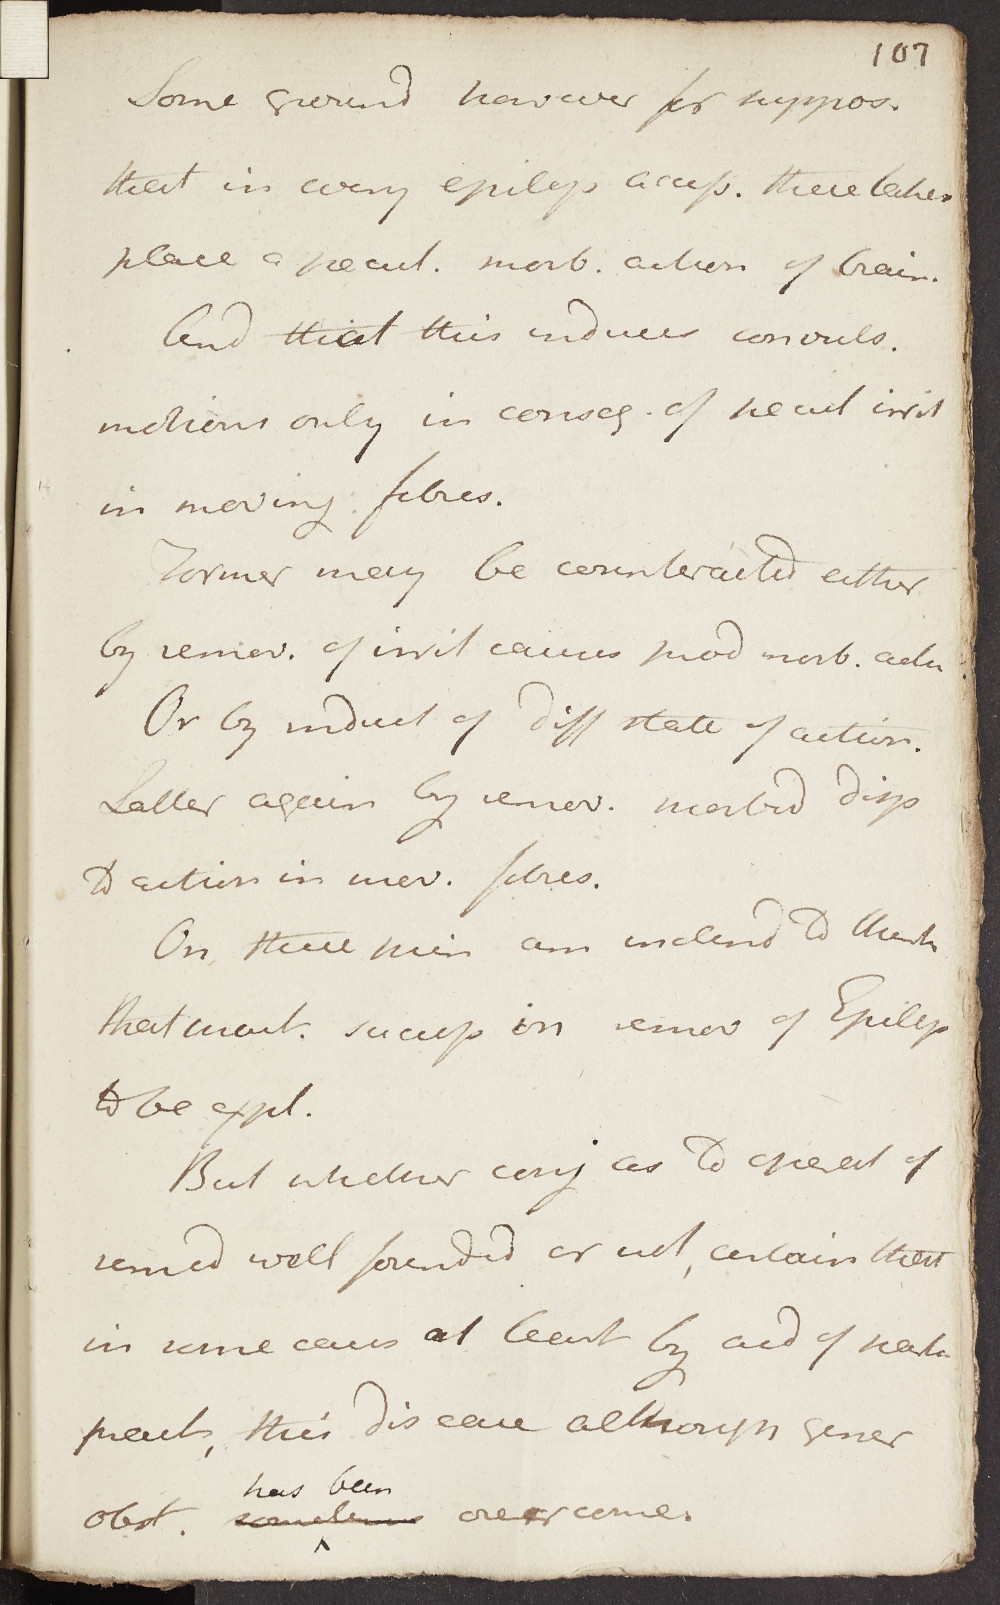 107
Some ground however for suppos.
that in every epilep access. there takes
place a pecul. morb. action of brain.
And that this induces convuls.
motions only in conseq. of pecul irrit
in moving fibres.
Former may be counteracted either
by remov. of irrit causes prod morb. actn
Or by induct of diff state of action.
Latter again by remov. morbid disp
to action in mov. fibres.
On these prin am inclind to think
that pract. success in remov of Epilep
to be expl.
But whether conj as to operat of
remed well founded or not, certain that
in some cases at least by aid of
pract, this disease although gener
obst. sometimes has been overcome.